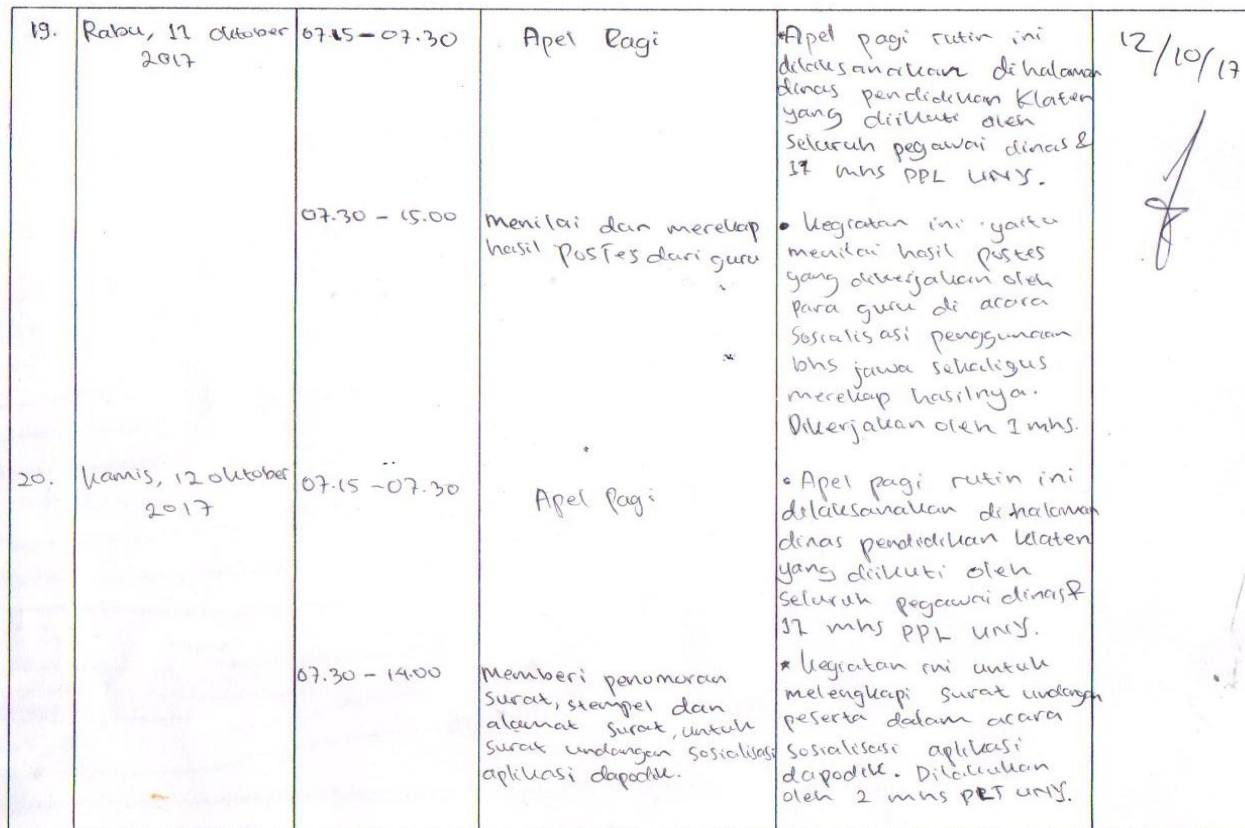 19.
Rabu, 11 Oktober
2017
07.15 - 07.30
Apel Pagi
• Apel pagi rutin ini
dilaksanakan dihalaman
dinas pendidikan Klaten
yang diikuti oleh
seluruh pegawai dinas &
17 mhs PPL UNY.
12/10/17
07.30 - 15.00
menilai dan merekap
hasil Postes dari guru
• Kegiatan ini yaitu
menilai hasil postes
yang dikerjakan oleh
para guru di acara
Sosialisasi penggunaan
bhs jawa sekaligus
merekap hasilnya.
Dikerjakan oleh 1 mhs.
20.
Kamis, 12 oktober
2017
07.15 - 07.30
Apel Pagi
• Apel pagi rutin ini
dilaksanakan dihalaman
dinas pendidikan Klaten
yang diikuti oleh
seluruh pegawai dinas &
17 mhs PPL UNY.
07.30 - 14.00
Memberi penomoran
surat, stempel dan
alamat surat, untuk
surat undangan sosialisasi
aplikasi dapodik.
• Kegiatan ini untuk
melengkapi surat undangan
peserta dalam acara
sosialisasi aplikasi
dapodik. Dilakukan
oleh 2 mhs UNY.